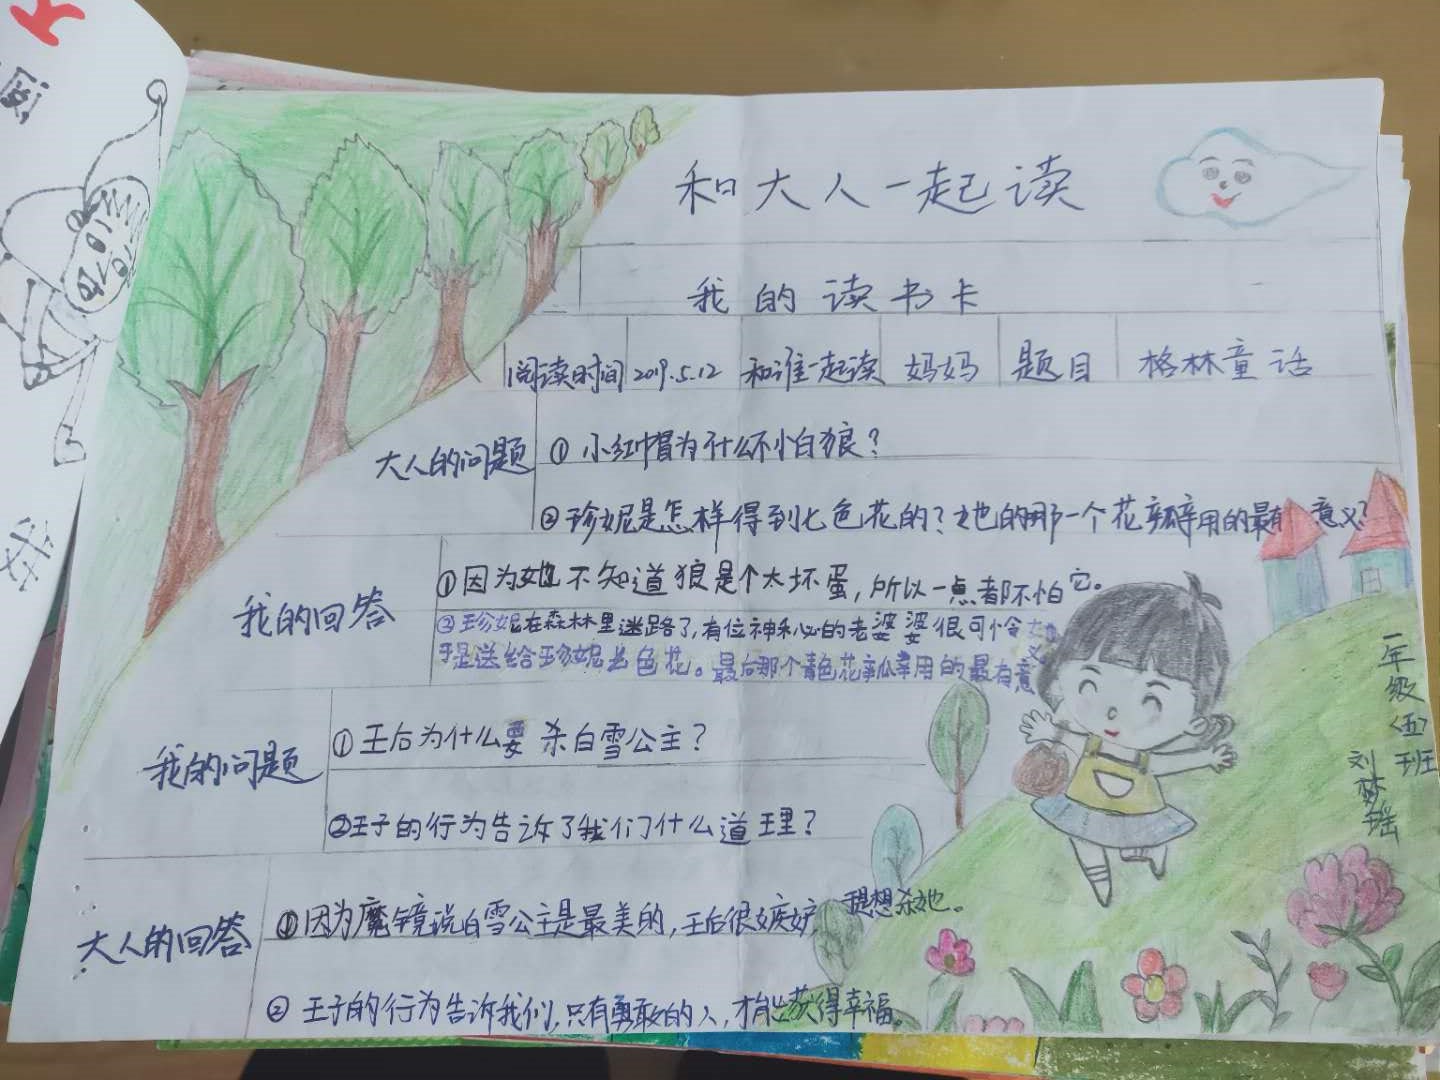 和大人一起读
我的读书卡
阅读时间 2019.5.12 和谁一起读 妈妈 题目 格林童话
大人的问题
①小红帽为什么不怕狼？
②珍妮是怎样得到七色花的？她的哪一个花瓣用的最有意义？
我的回答
①因为她不知道狼是个大坏蛋，所以一点都不怕它。
②珍妮在森林里迷路了，有位神秘的老婆婆很可怜她
于是送给珍妮七色花。最后那个青色花瓣用的最有意义
我的问题
①王后为什么要杀白雪公主？
②王子的行为告诉了我们什么道理？
大人的回答
①因为魔镜说白雪公主是最美的，王后很嫉妒，想杀她。
②王子的行为告诉我们，只有勇敢的人，才能获得幸福。
一年级〈五〉班
刘梦瑶
我